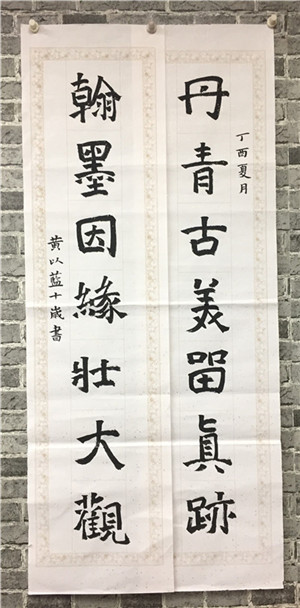 丹青古美㽞眞跡
丁酉夏月
翰墨因緣壯大觀
黃以藍十歲書